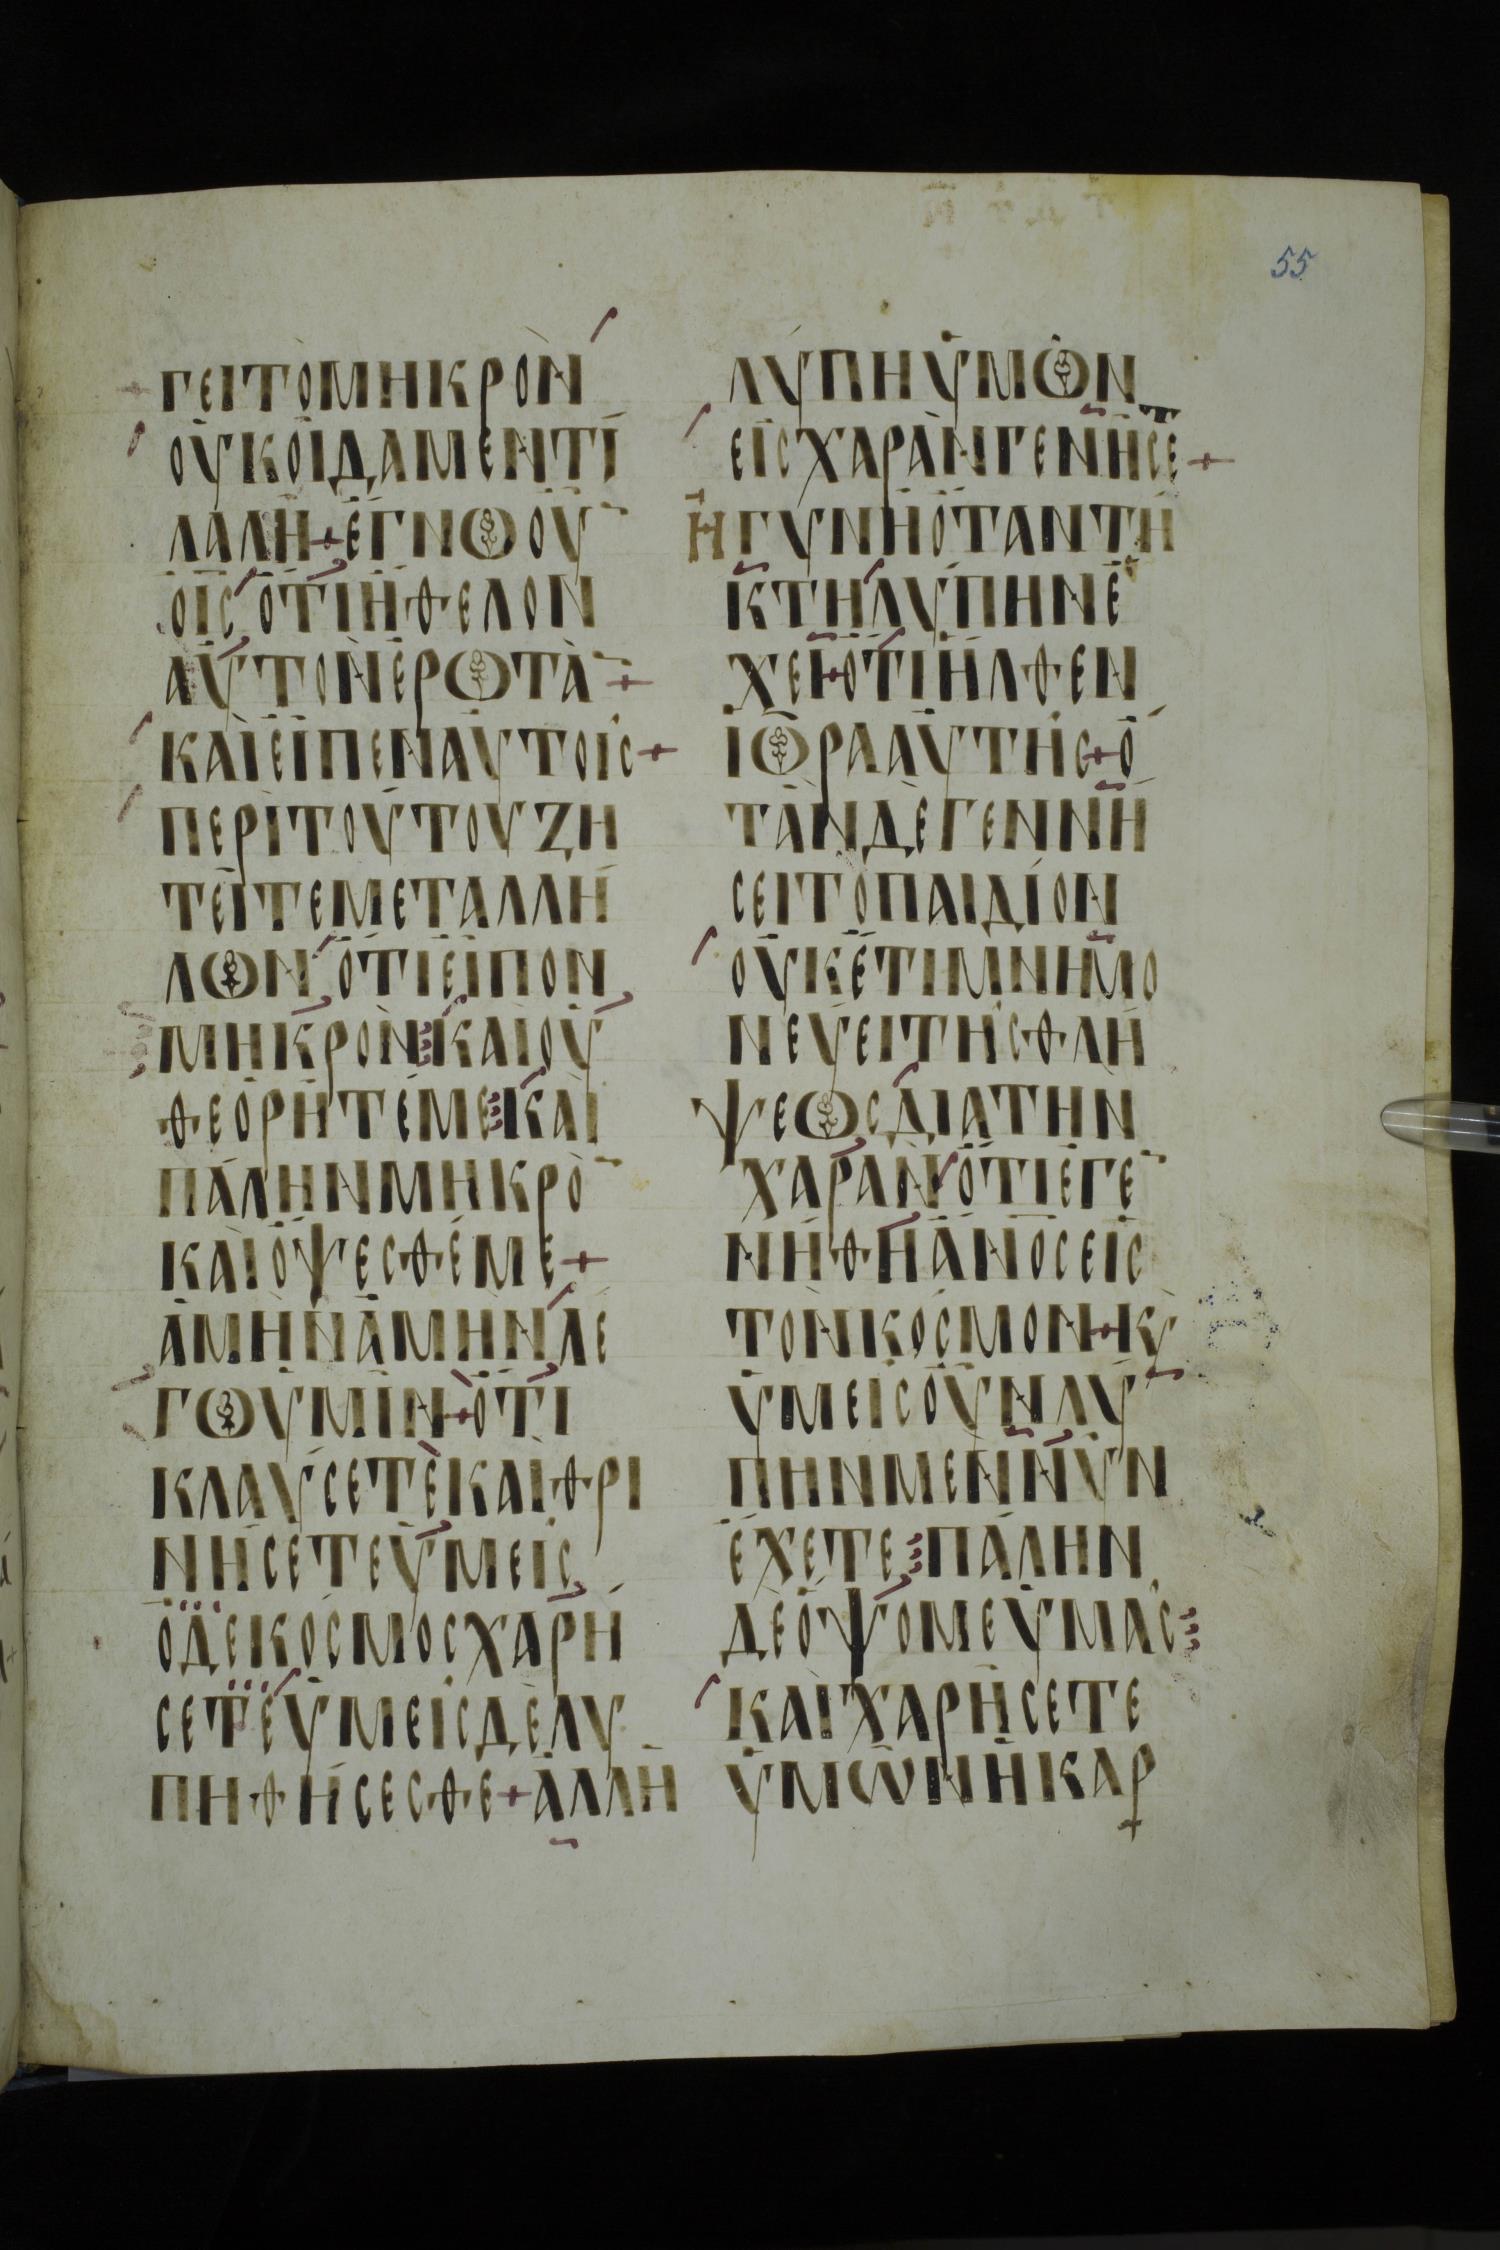 55
ΓΕΙΤΟΜΗΚΡΟΝ
ΟΥΚΟΙΔΑΜΕΝΤΙ
ΛΑΛΗ+ΕΓΝΩΟΥ
ΟΙΣΟΤΙΗΘΕΛΟΝ
ΑΥΤΟΝΕΡΩΤΑ+
ΚΑΙΕΙΠΕΝΑΥΤΟΙΣ+
ΠΕΡΙΤΟΥΤΟΥΖΗ
ΤΕΙΤΕΜΕΤΑΛΛΗ
ΛΩΝΟΤΙΕΙΠΟΝ
ΜΗΚΡΟΝΚΑΙΟΥ
ΘΕΟΡΗΤΕΜΕΚΑΙ
ΠΑΛΗΝΜΗΚΡΟ
ΚΑΙΟΨΕΣΘΕΜΕ+
ΑΜΗΝΑΜΗΝΛΕ
ΓΩΥΜΙΝ+ΟΤΙ
ΚΛΑΥΣΕΤΕΚΑΙΘΡΙ
ΝΗΣΕΤΕΥΜΕΙΣ
ΟΔΕΚΟΣΜΟΣΧΑΡΗ
ΣΕΤΕΥΜΕΙΣΔΕΛΥ
ΠΗΘΗΣΕΣΘΕ+ΑΛΛΗ
ΛΥΠΗΥΜΩΝ
ΕΙΣΧΑΡΑΝΓΕΝΗΣΕΤ+
ΗΓΥΝΗΟΤΑΝΤΗ
ΚΤΗΛΥΠΗΝΕ
ΧΕΙ+ΟΤΙΗΛΘΕΝ
ΙΩΡΑΑΥΤΗΣ+Ο
ΤΑΝΔΕΓΕΝΝΗ
ΣΕΙΤΟΠΑΙΔΙΟΝ
ΟΥΚΕΤΙΜΝΗΜΟ
ΝΕΥΕΙΤΗΣΘΛΗ
ΨΕΩΣΔΙΑΤΗΝ
ΧΑΡΑΝΟΤΙΕΓΕ
ΝΗΘΗΑΝΟΣΕΙΣ
ΤΟΝΚΟΣΜΟΝ+Κ
ΥΜΕΙΣΟΥΝΛΥ
ΠΗΝΜΕΝΝΥΝ
ΕΧΕΤΕΠΑΛΗΝ
ΔΕΟΨΟΜΕΥΜΑΣ
ΚΑΙΧΑΡΗΣΕΤΕ
ΥΜΩΝΗΚΑΡ